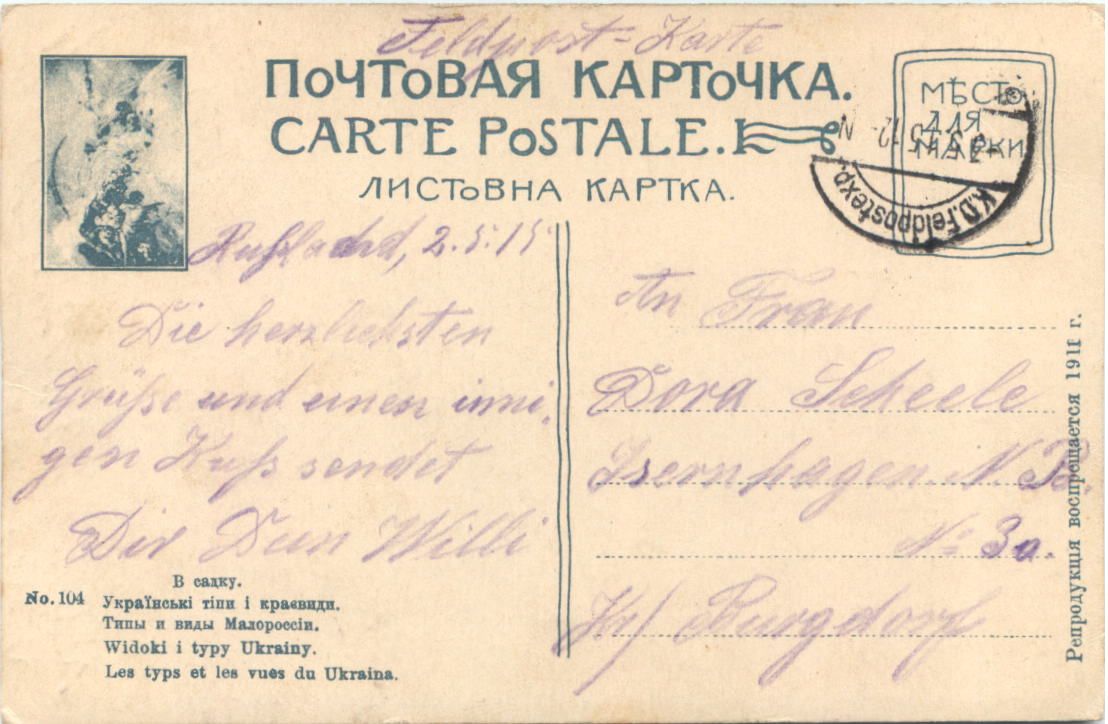 Feldpost-Karte
ПОЧТОВАЯ КАРТОЧКА.
CARTE POSTALE.
ЛИСТОВНА КАРТКА.
МѢСТО
ДЛЯ
МАРКИ
K.D.Feldpostexp.
Rußland, 2.5.15
Die herzlichsten
Grüße und einen inni-
gen Kuß sendet
Dir Dein Willi
An Frau
Dora Scheele
Isernhagen N. B.
No 30.
Kr/ Burgdorf
В садку.
No. 104 Українські тіпи і краєвиди.
Типы и виды Малороссіи.
Widoki i typy Ukrainy.
Les typs et les vues du Ukraina.
Репродукція воспрещается 1911 г.